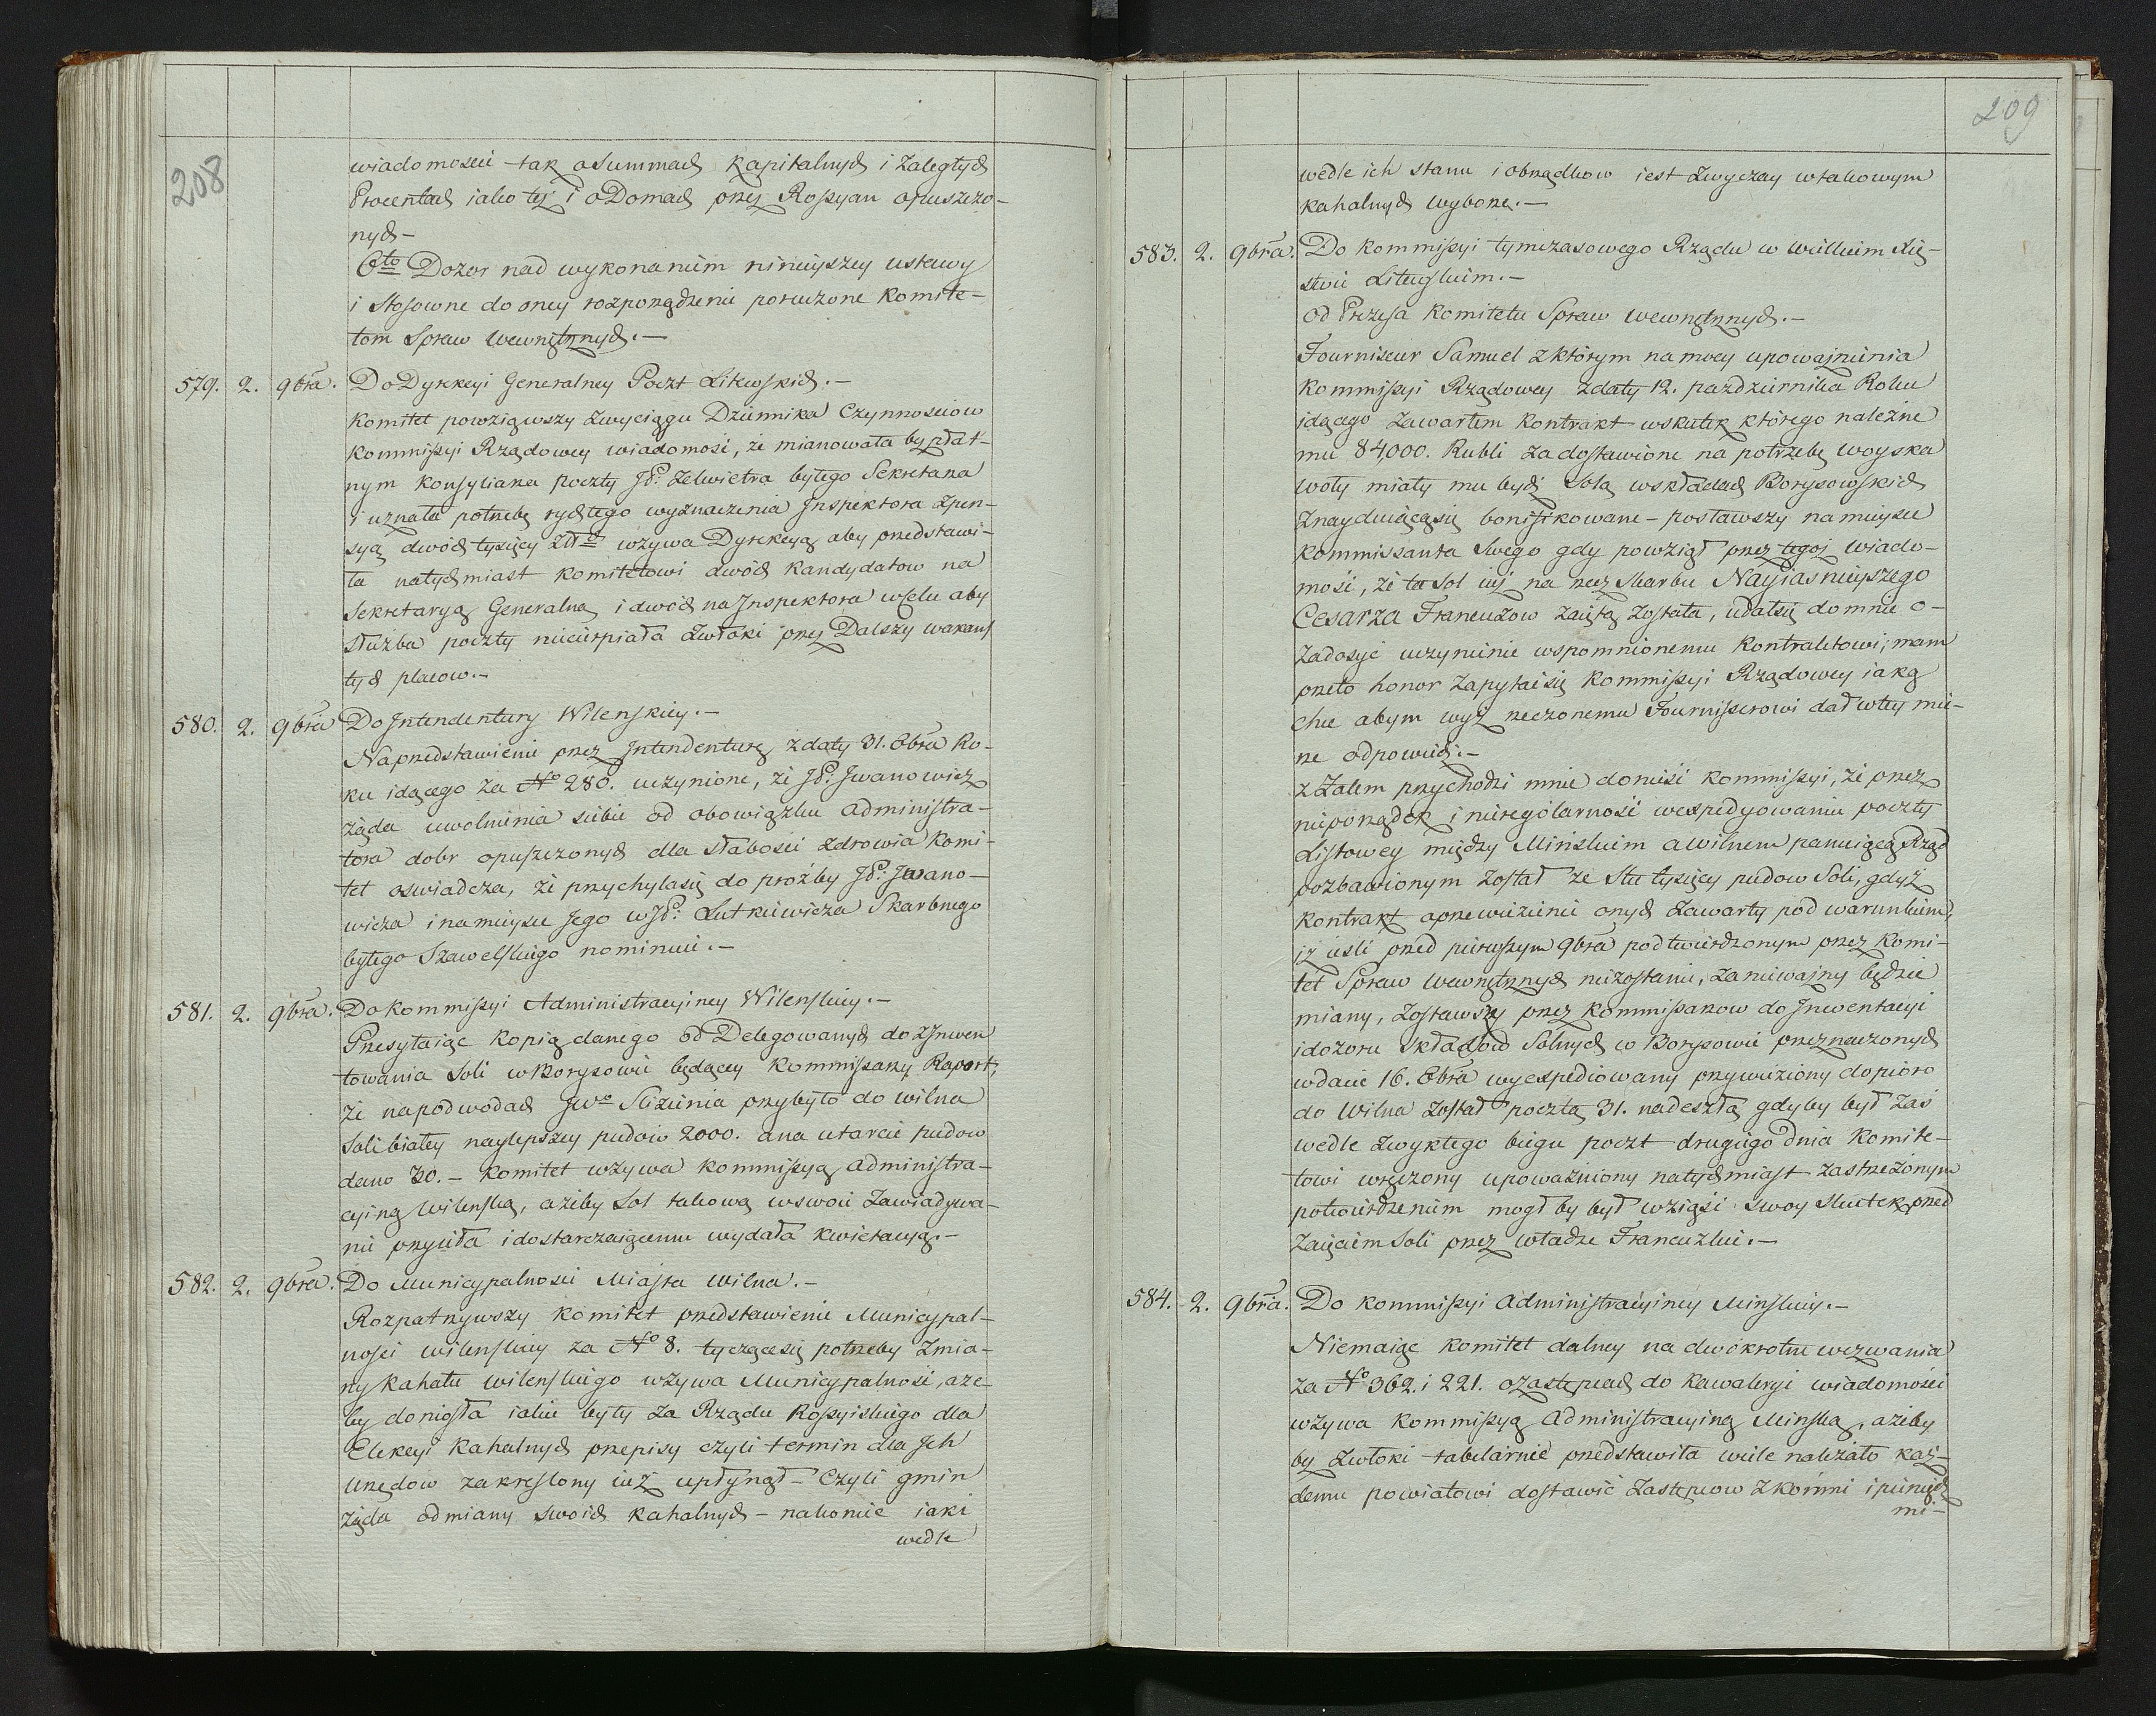 208
wiadomości tak o Summach Kapitalnych i Zaległych
Procentach iako też i o Domach przez Rossyan opuszczo-
nych -
6to Dozor nad wykonaniem ninieyszey ustawy
i Stosowne do oney rozporządzenie poruczone Komite-
tom Spraw Wewnętrznych.-
579. 2. 9bra. Do Dyrekcyi Generalney Poczt Litewskich.-
Komitet powziąwszy z wyciągu Dziennika Czynnosciow
Kommissyi Rządowey wiadomość, że mianowała bezpłat-
nym Konsyliarza poczty JP. Zelwietra byłego Sekretarza
i uznała potrzebę rychłego wyznaczenia Jnspektora z pen-
syą dwóch tysięcy Złł wzywa Dyrekcyą aby przedstawi-
ła natychmiast Komitetowi dwóch Kandydatow na
Sekretaryą Generalną i dwóch na Jnspektora w celu aby
służba poczty niecierpiała zwłoki przez Dalszy wakans
tych placow.-
580. 2. 9bra Do Jntendentury Wileńskiey.-
Na przedstawienie przez Jntendenturę z daty 31. 8bra Ro-
ku idącego za No 280. uczynione, że JP. Jwanowicz
żąda uwolnienia siebie od obowiązku administra-
tora dobr opuszczonych dla słabości zdrowia Komi-
tet oswiadcza, że przychyla się do prożby JP. Jwano-
wicza i na mieysce Jego WJP. Lutkiewicza Skarbnego
byłego Szawelskiego nominuie.-
581. 2. 9bra. Do Kommissyi Administracyiney Wileńskiey.-
Przesyłaiąc Kopią danego od Delegowanych do zJnwen
towania Soli w Borysowie będącey Kommissarzy Raport,
że na podwodach JWo Sliźenia przybyło do Wilna
Soli białey naylepszey pudow 2000. a na utarcie pudow
dano 30.- Komitet wzywa Kommissyą administra-
cyiną Wileńską, ażeby Sol takową w swoie Zawiadywa-
nie przyieła i dostarczaiącemu wydała kwietacyą.-
582. 2. 9bra. Do Municypalnosci Miasta Wilna.-
Rozpatrzywszy Komitet przedstawienie Municypal-
nosci wileńskiey za No 8. tyczące się potrzeby zmia-
ny Kahału wileńskiego wzywa Municypalność, aże-
by doniosła iakie były za Rządu Rossyiskiego dla
Elekcyi Kahalnych przepisy czyli termin dla Jch
Urzędow zakreslony iuż upłynął - Czyli gmin
żąda odmiany swoich Kahalnych - nakoniec iaki
wedle
209
wedle ich stanu i obrządkow iest zwyczay w takowym
kahalnych wyborze.-
583. 2. 9bra. Do Kommissyi tymczasowego Rządu w Wielkiem Xię-
stwie Litewskiem.-
od Prezesa Komitetu Spraw wewnętrznych.-
Fournisseur Samuel z którym na mocy upoważnienia
Kommissyi Rządowey z daty 12. października Roku
idącego zawartem Kontrakt wskutek którego należne
mu 84,000. Rubli za dostawione na potrzebę woyska
woły miały mu bydź Solą w składach Borysowskich
znayduiącą się bonifikowane - postawszy na mieysce
Kommissanta Swego gdy powziął przez tegoż wiado-
mość, że ta sol iuż na rzecz Skarbu Nayiasnieyszego
Cesarza Francuzow zaięta została, udał się do mnie o-
zadosyć uczynienie wspomnionemu Kontraktowi; mam
przeto honor zapytać się Kommissyi Rządowey iaką
chce abym wyż rzeczonemu Fournisserowi dał w tey mie-
rze odpowiedź.-
z Żalem przychodzi mnie donieść Kommissyi, że przez
nieporządek i nierególarność w expedyowaniu poczty
Listowey między Mińskiem a Wilnem panuiącą Rząd
pozbawionym został ze Stu tysięcy pudow Soli, gdyż
Kontrakt o przewiezienie onych zawarty pod warunkiem,
iż iesli przed pierwszym 9bra podtwierdzonym przez Komi-
tet Spraw Wewnętrznych niezostanie, za nieważny będzie
miany, zostawszy przez Kommissarzow do Jnwentacyi
i dozoru Składow Solnych w Borysowie przeznaczonych
w dacie 16. 8bra wyexpediowany przywieziony dopioro
do Wilna został pocztą 31. nadeszłą gdyby był zaś
wedle zwykłego biegu poczt drugiego dnia Komite-
towi wręczony upoważniony natychmiast zastrzeżonym
potwierdzeniem mogł by był wziąść swoy skutek przed
zaięciem Soli przez władze Francuzkie.-
584. 2. 9bra. Do Kommissyi Administracyiney Minskiey.-
Niemaiąc Komitet dalney na dwókrotne wezwania
za No 362. i 221. o zastępcach do Kawaleryi wiadomości
wzywa Kommissyą Administracyiną Minską, ażeby
bez zwłoki tabelarnie przedstawiła wiele należało każ-
demu powiatowi dostawić Zastępcow z Końmi i pieniędz
mi-